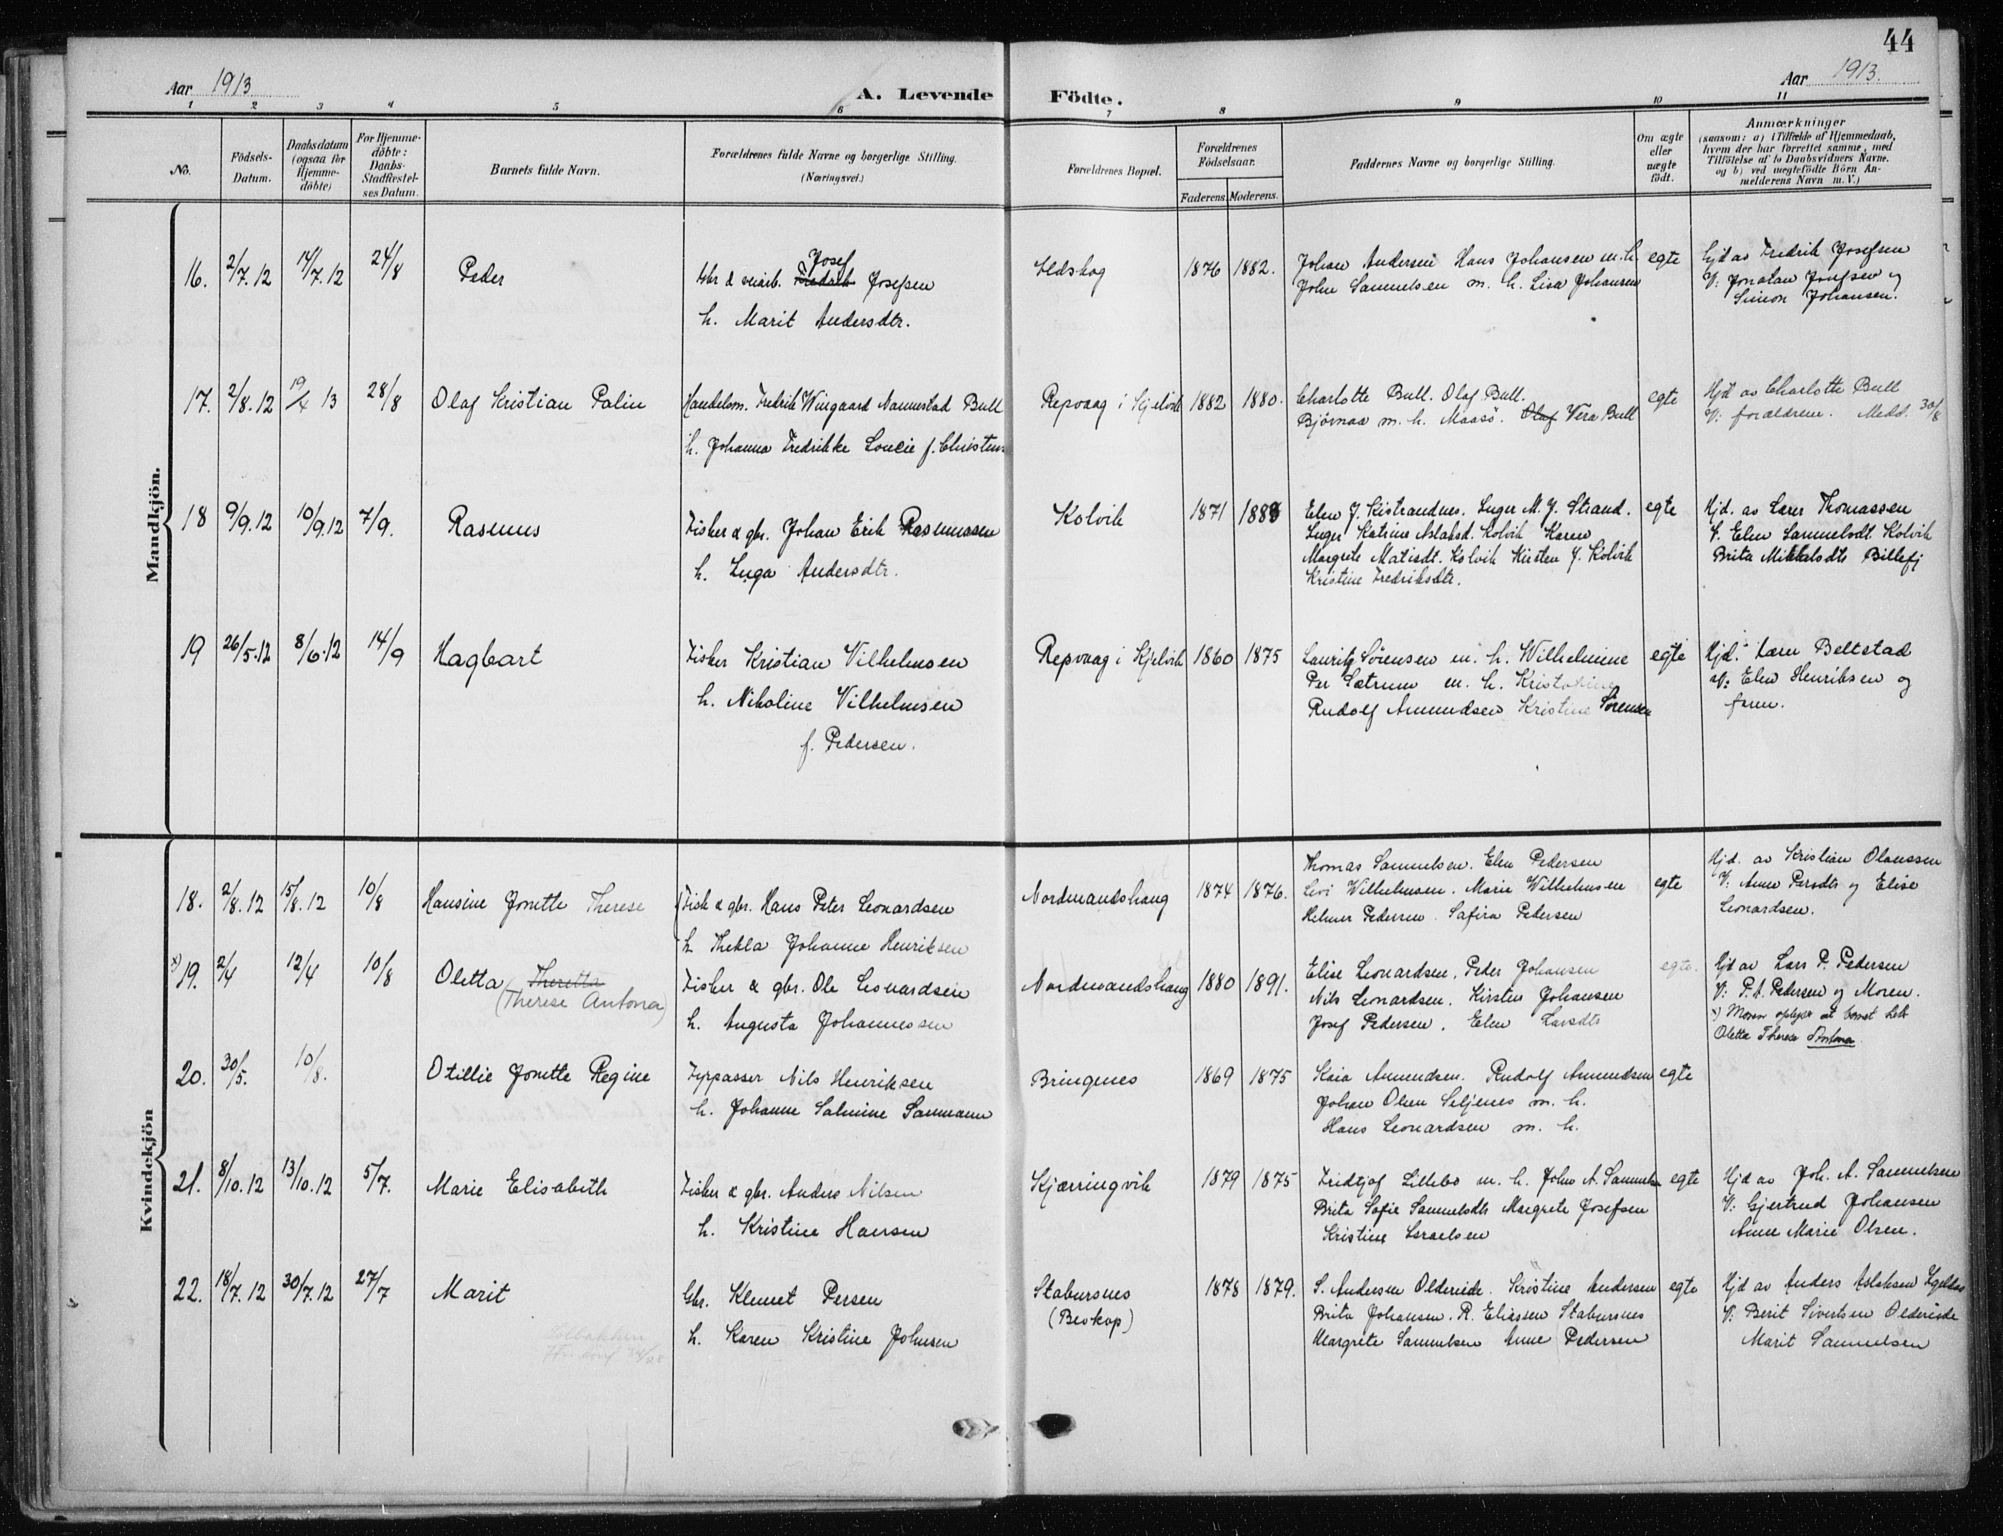 44
Aar 1913
A. Levende Födte.
Aar 1913.
1 2 3 4 5 6 7 8 9 10 11
No.
Födsels-Datum.
Daabsdatum (ogsaa for Hjemme-döbte)
For Hjemme-döbte: Daabs-Stadfæstel-ses Datum.
Barnets fulde Navn.
Forældrenes fulde Navne og borgerlige Stilling.
(Næringsvei.)
Forældrenes Bopæl.
Forældrenes Födselsaar.
Faderens. Moderens.
Faddernes Navne og borgerlige Stilling.
Om ægte eller uægte födt.
Anmærkninger
(saasom: a) i Tilfælde af Hjemmedaab,
hvem der har forrettet samme, med
Tilföielse af to Daabsvidners Navne.
og b) ved uægtefödte Börn An-
melderens Navn m. V.)
Mandkjön.
16. 2/7.12 14/7.12 24/8 Peder
Josef
Gbr & veiarb. Fredrik Josefsen
h. Marit Andersdtr.
Eldskog 1876 1882.
Johan Andersen Hans Johansen m. h.
John Samuelsen m. h. Lisa Johansen
egte
Hjd av Fredrik Josefsen
V: Jonatan Josefsen og
Simon Johansen.
17. 2/8.12 19/4 13 28/8 Olaf Kristian Palin
Handelsm. Fredrik Wingaard Nannestad Bull
h. Johanna Fredrikke Loucie f. Christens
Repvaag i Kjelvik 1882 1880.
Charlotte Bull. Olaf Bull.
Bjørnaa m. h. Maasø. Olaf Vera Bull
egte
Hjd av Charlotte Bull
V: forældrene. Medd. 30/8
18 9/9.12 10/9.12 7/9. Rasmus
Fisker & gbr. Johan Erik Rasmussen
h. Inga Andersdtr.
Kolvik 1871 1888
Elen J. Kistrandnes. Inger M. J. Strand.
Inger Katrine Aslaksd. Kolvik Karen
Margrete Matisdt. Kolvik Kirsten J. Kolvik
Kristine Fredriksdtr.
egte
Hjd. av Lærer Thomassen
V. Elen Samuelsdt. Kolvik
Brita Mikkelsdts Billefj
19 26/5.12 8/6.12 14/9 Hagbart
Fisker Kristian Vilhelmsen
h. Nikoline Vilhelmsen
f. Pedersen.
Repvaag i Kjelvik 1860 1875
Lauritz Sørensen m. h. Wilhelmine
Per Sætrum m. h. Kristofine
Rudolf Amundsen Kristine Sørensen
egte
Hjd. Lærer Beltstad
V: Elen Henriksen og
faren.
Kvindekjön
18. 2/8.12 15/8.12 10/8 Hansine Jonette Therese
Fisk & gbr. Hans Peter Leonardsen
h. Thekla Johanne Henriksen
Nordmandshaug 1874 1876.
Thomas Samuelsen. Elen Pedersen
Levi Wilhelmsen. Marie Wilhelmsen
Helmer Pedersen. Safira Pedersen
egte
Hjd. av Kristian Olaussen
V: Anne Persdts og Elise
Leonardsen.
x) 19. 2/4 12/4 10/8 Oletta Theretta
(Therese Antona)
Fisker & gbr. Ole Leonardsen
h. Augusta Johannessen
Nordmandshaug 1880 1891.
Elise Leonardsen. Peder Johansen
Nils Leonardsen. Kirsten Johansen
Josef Pedersen. Elen Larsdts
egte.
Hjd av Lars P. Pedersen
V: P. A. Pedersen og Moren.
x) Moren oplyser at barnet het
Oletta Therese Antona.
20. 30/5. 10/8. Otillie Jonette Regine
Fyrpasser Nils Henriksen
h. Johanne Salmine Sammann
Bringenes 1869 1875
Kaia Amundsen. Rudolf Amundsen
Johan Olsen Seljenes m. h.
Hans Leonardsen m. h.
egte
21. 8/10.12 13/10.12 5/7. Marie Elisabeth
Fisker & gbr. Anders Nilsen
h. Kristine Hansen
Kjærringvik 1879 1875
Fridtjof Lillebo m. h. John A. Samuelsen
Brita Sofie Samuelsdts Margrete Josefsen
Kristine Israelsen
egte
Hjd av Joh. A. Samuelsen
V: Gjertrud Johansen
Anne Marie Olsen.
22. 18/7.12 30/7.12 27/7 Marit
Gbr. Klemet Persen
h. Karen Kristine Johnsen
Stabursnes
(Bevkop)
1878 1879.
S. Andersen Oldereide. Kristine Andersen
Brita Johansen. R. Eliassen Stabursnes
Margrete Samuelsen Anne Pedersen
egte
Hjd av Anders Aslaksen
V: Berit Sivertsen Oldereide
Marit Samuelsen